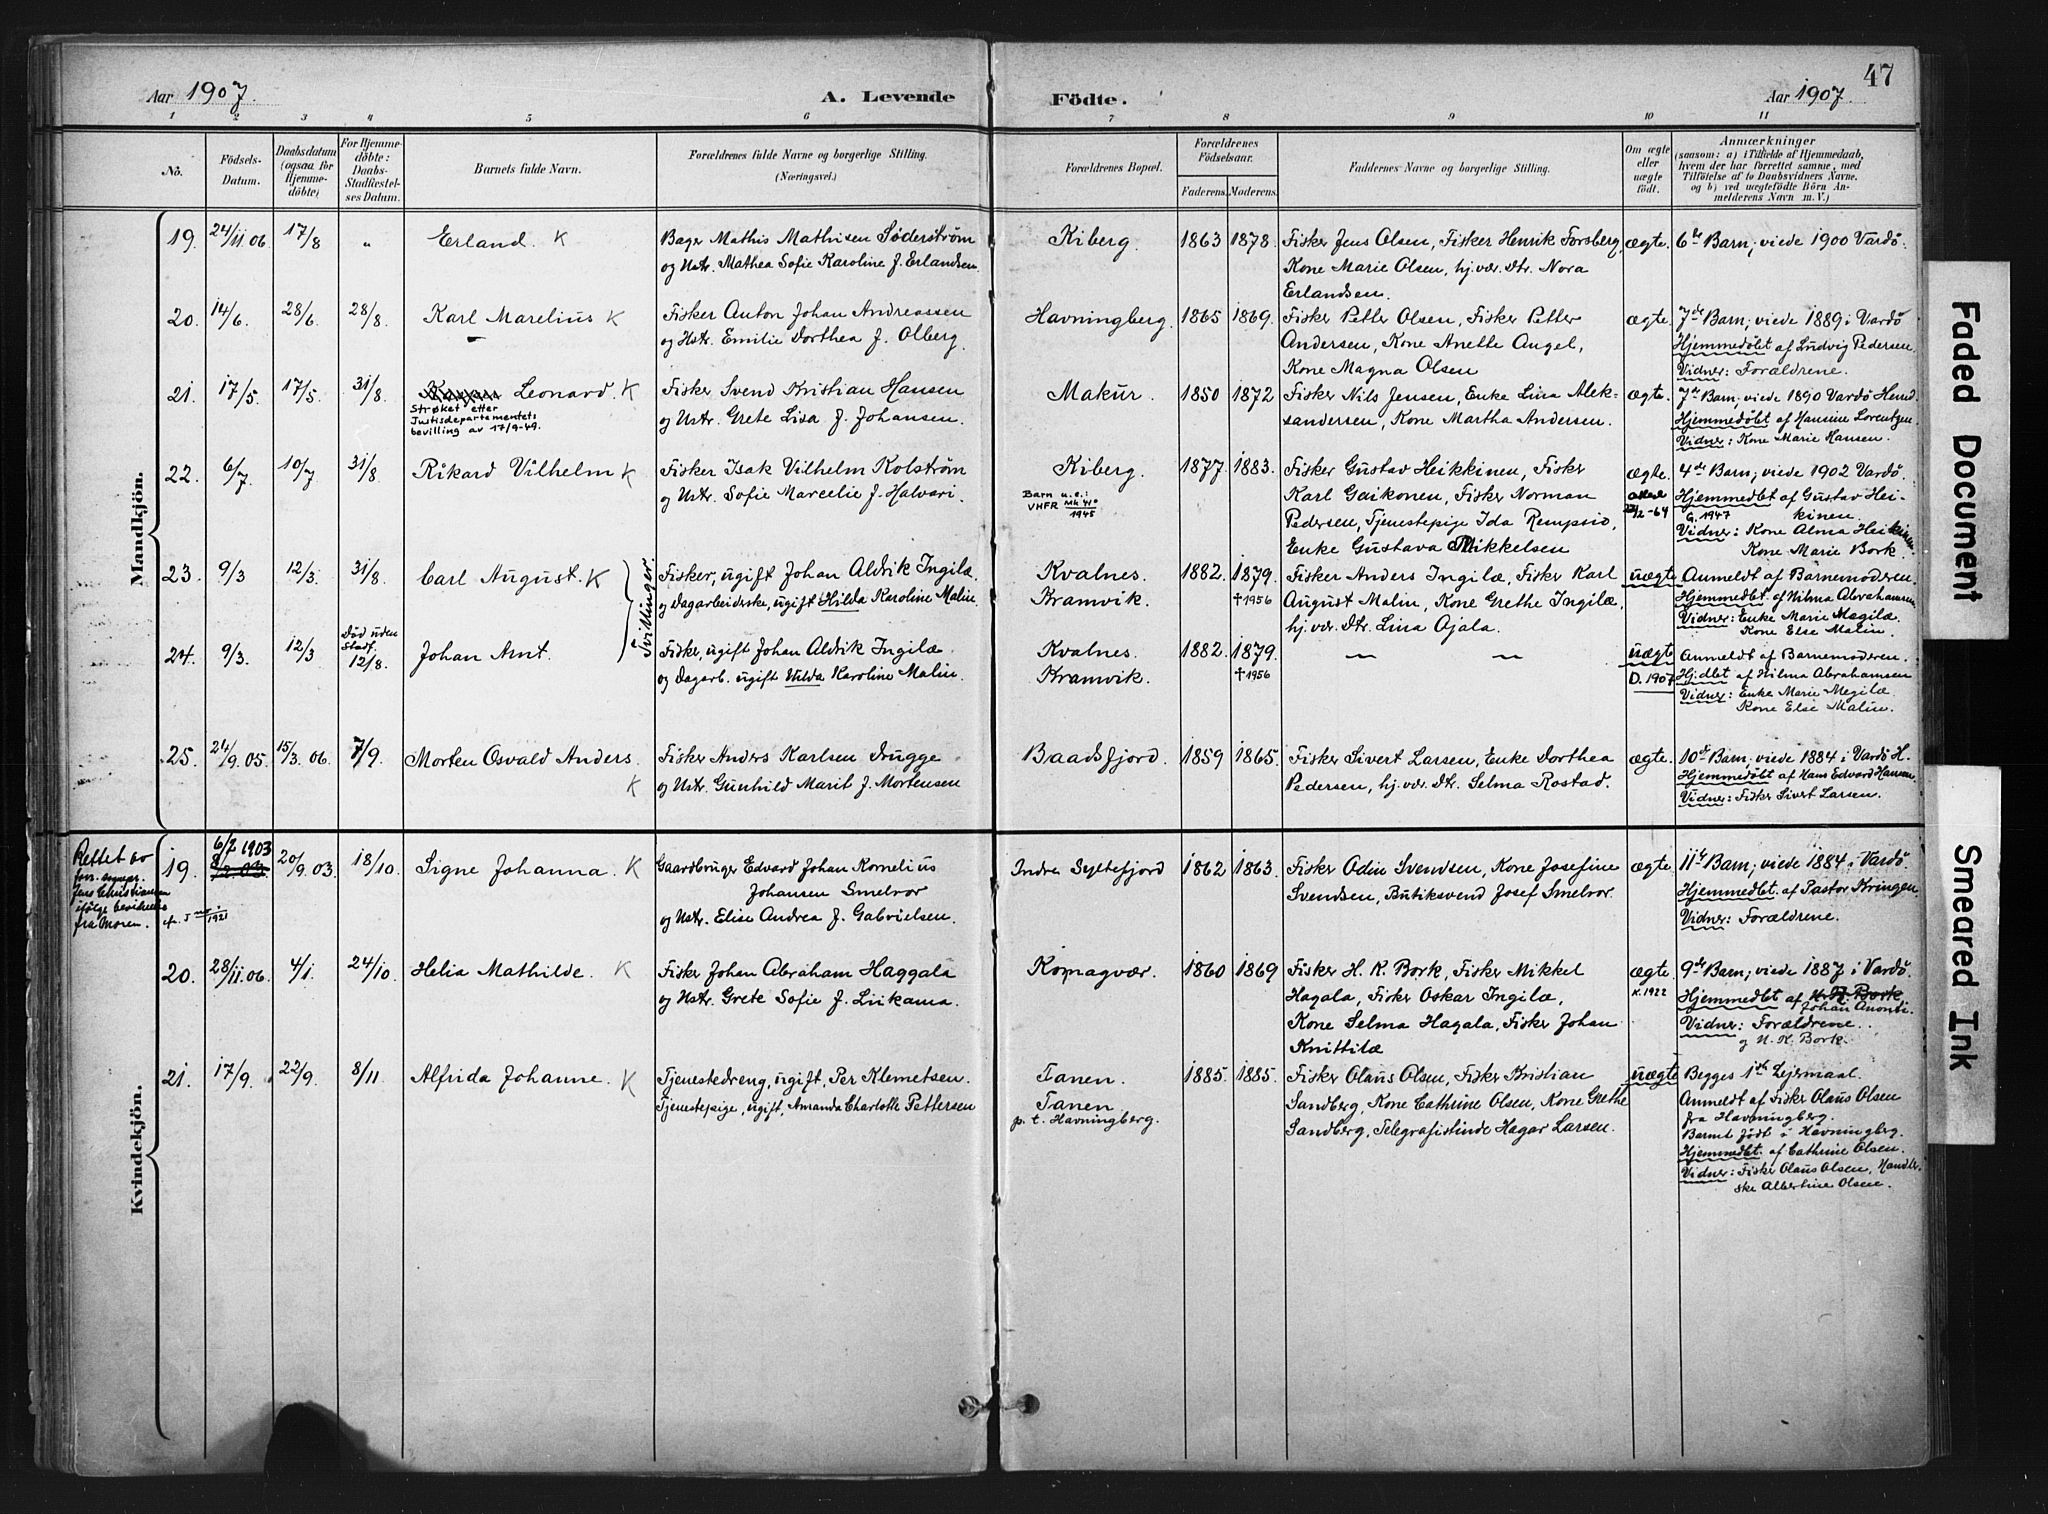 Aar 1907.
A. Levende Födte.
Aar 1907.
47
1 2 3 4 5 6 7 8 9 10 11
No.
Födsels-
Datum.
Daabsdatum
(ogsaa for
Hjemme-
döbte)
For Hjemme-
döbte:
Daabs-
Stadfæstel-
ses Datum.
Barnets fulde Navn.
Forældrenes fulde Navne og borgerlige Stilling.
(Næringsvei.)
Forældrenes Bopæl.
Forældrenes
Födselsaar.
Faderens. Moderens.
Faddernes Navne og borgerlige Stilling.
Om ægte
eller
uægte
födt.
Anmærkninger
(saasom: a) i Tilfælde af Hjemmedaab,
hvem der har forrettet samme, med
Tilföielse af to Daabsvidners Navne,
og b) ved uægtefödte Börn An-
melderens Navn m. V.)
Mandkjön.
19. 24/11 06 17/8 " Erland. K Bager Mathis Mathisen Söderström Kiberg. 1863 1878. Fisker Jens Olsen, Fisker Henrik Forsberg, ægte. 6te Barn; viede 1900 Vardö.
og Hstr. Mathea Sofie Karoline f. Erlandsen. Kone Marie Olsen, hj. vær. Dtr. Nora
Erlandsen.
20. 14/6. 28/6 28/8 Karl Marelius K Fisker Anton Johan Andreassen Havningberg. 1865 1869. Fisker Petter Olsen, Fisker Petter ægte. 7de Barn; viede 1889 i Vardö
og Hstr. Emilie Dorthea f. Olberg. Andersen, Kone Anette Angel, Hjemmedöbt af Ludvig Pedersen.
Kone Magna Olsen Vidner: Forældrene.
21. 17/5. 17/5. 31/8. Leonard. K Fisker Svend Kristian Hansen Makur. 1850 1872 Fisker Nils Jensen, Enke Lina Alek- ægte. 7de Barn; viede 1890 Vardö
Strøket etter
Justisdepartementets
bevilling av 17/9-49.
og Hstr. Grete Lisa f. Johansen. sandersen, Kone Martha Andersen. Hjemmedöbt af Hansine Lorentzen.
Vidner: Kone Marie Hansen.
22. 6/7. 10/7 31/8. Rikard Vilhelm K Fisker Isak Vilhelm Kolström Kiberg. 1877. 1883. Fisker Gustav Heikkinen, Fisker ægte. 4de Barn; viede 1902 Vardö.
og Hstr. Sofie Marcelie f. Halvari. Barn u.e.: Karl Gaikonen, Fisker Norman Hjemmedbt af Gustav Hei-
VHFR 1945 G. 1947 kinen.
Pedersen, Tjenestepige Ida Rempsiö, Vidner: Kone Alma Heikinen.
Enke Gustava Mikkelsen Kone Marie Bork
23. 9/3 12/3. 31/8. Carl August. K Fisker, ugift Johan Aldrik Ingilæ. Kvalnes. 1882. 1879. Fisker Anders Ingilæ, Fisker Karl uægte Anmeldt af Barnemoderen.
og Dagarbeiderske, ugift Hilda Karoline Malin. Kramvik. † 1956 August Malin, Kone Grethe Ingilæ, Hjemmedbt. af Hilma Abrahamsen
hj. vær. Dtr. Lina Ojala. Vidner: Enke Marie Megilæ.
Kone Else Malin.
Tvillinger.
24. 9/3. 12/3 Död uden
Stadf.
12/8. Johan Arnt. Fisker, ugift Johan Aldrik Ingilæ. Kvalnes. 1882. 1879. — — uægte Anmeldt af Barnemoderen.
og Dagarb. ugift Hilda Karoline Malin. Kramvik. † 1956 D. 1907 Hjdbt af Hilma Abrahamsen
Vidner: Enke Marie Megilæ.
Kone Else Malin.
25. 24/9. 05. 15/3. 06. 7/9. Morten Osvald Anders. K Fisker Anders Karlsen Drugge Baadsfjord. 1859 1865. Fisker Sivert Larsen, Enke Dorthea ægte. 10de Barn; viede 1884 i Vardö H.
og Hstr. Gunhild Marit f. Mortensen Pedersen, hj. vær. Dtr. Selma Rostad. Hjemmedöbt af Hans Edvard Hansen.
Vidner: Fisker Sivert Larsen.
Kvindekjön.
Rettet av
forr. sognepr.
Jens Christiansen
ifölge bevidnelse
fra Moren.
19. 6/7 1903 20/9. 03. 18/10. Signe Johanna. K Gaardbruger Edvard Johan Kornelius Indre Syltefjord 1862 1863. Fisker Odin Svendsen, Kone Josefine ægte. 11te Barn; viede 1884 i Vardö
Johansen Smelror Svendsen, Butiksvend Josef Smelror. Hjemmedbt. af Pastor Kringen.
og Hstr. Elise Andrea f. Gabrielsen. Vidner: Forældrene.
20. 28/11. 06. 4/1. 24/10. Helia Mathilde. K Fisker Johan Abraham Haggala Komagvær. 1860 1869 Fisker H. K. Bork, Fisker Mikkel ægte. 9de Barn; viede 1887 i Vardö.
og Hstr. Grete Sofie f. Liikama. Hagala, Fisker Oskar Ingilæ, K. 1922 Hjemmedbt af H. K. Bork
Johan Anonti.
Kone Selma Hagala, Fisker Johan Vidner: Forældrene.
Knittilæ og H. K. Bork.
21. 17/9. 22/9. 8/11 Alfrida Johanne. K Tjenestedreng, ugift, Per Klemetsen. Tanen. 1885. 1885. Fisker Olaus Olsen, Fisker Kristian uægte Begges 1ste Lejermaal.
Tjenestepige, ugift, Amanda Charlotte Pettersen Tanen Sandberg, Kone Cathrine Olsen, Kone Grethe Anmeldt af Fisker Olaus Olsen
p. t. Havningberg. Sandberg, Telegrafistinde Hagar Larsen. fra Havningberg.
Barnet födt i Havningberg.
Hjemmedbt. af Cathrine Olsen.
Vidner: Fisker Olaus Olsen, Handler-
ske Albertine Olsen.
Faded Document
Smeared Ink